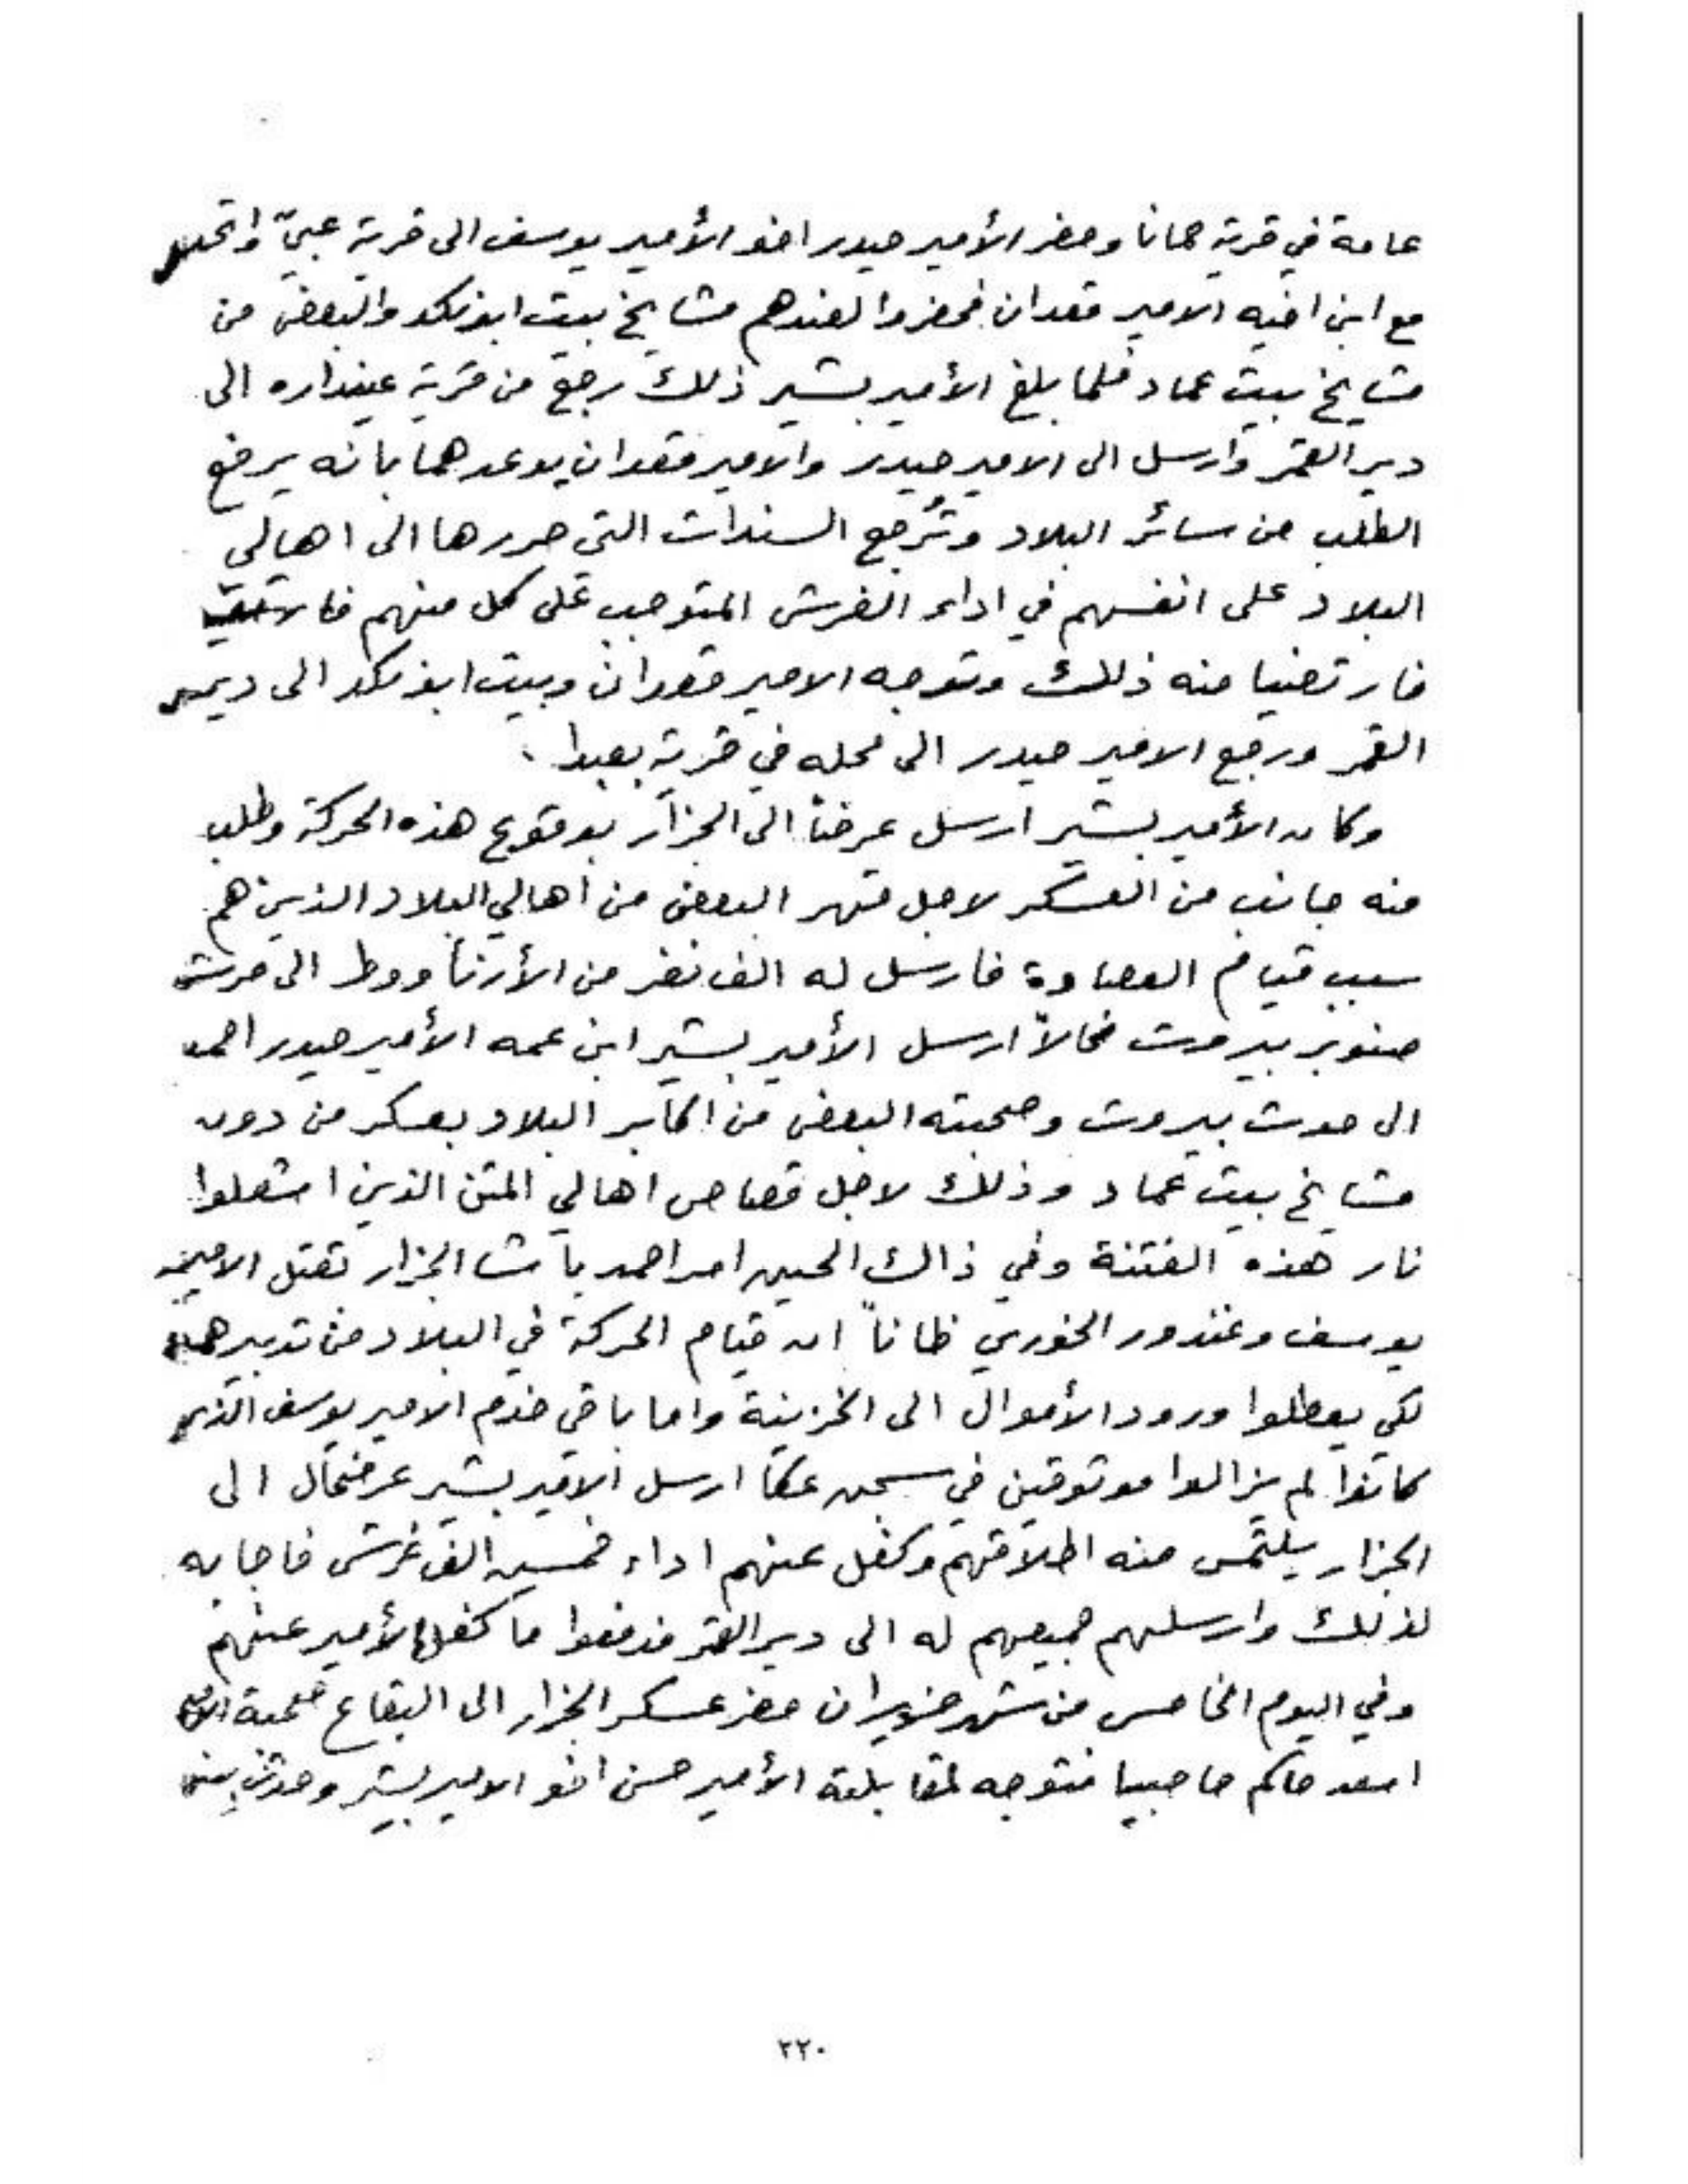 عامة في قرية حمانا وحضر الأمير حيدر اخو الأمير يوسف الى قرية عبيّ واتحد
مع ابن اخيه الامير قعدان فحضروا لعندهم مشايخ بيت ابو نكد والبعض من
مشايخ بيت عماد فلما بلغ الأمير بشير ذلك رجع من قرية عينداره الى
دير القمر وارسل الى الامير حيدر والامير قعدان يوعدهما بانه يرفع
الطلب من سائر البلاد وتُرجع السندات التي حررها الى اهالي
البلاد على انفسهم في اداء الغرش المتوجب على كل منهم
فارتضيا منه ذلك وتوجه الامير قعدان وبيت ابو نكد الى دير
القمر ورجع الامير حيدر الى محله في قرية بعبدا .
وكان الأمير بشير ارسل عرضاً الى الجزار بوقوع هذه الحركة وطلب
منه جانب من العسكر لاجل قهر البعض من اهالي البلاد الذين هم
سبب قيام العصاوة فارسل له الف نفر من الأرنأووط الى حرش
صنوبر بيروت فحالاً ارسل الأمير بشير ابن عمه الأمير حيدر احمد
الى حدث بيروت وصحبته البعض من اكابر البلاد بعسكر من دون
مشايخ بيت عماد وذلك لاجل قصاص اهالي المتن الذين اشعلوا
نار هذه الفتنة وفي ذاك الحين امر احمد باشا الجزار بقتل الامير
يوسف وغندور الخوري ظاناً ان قيام الحركة في البلاد من تدبيرهما
لكي يعطلوا ورود الأموال الى الخزينة واما باقي خدم الامير يوسف الذين
كانوا لم يزالوا موثوقين في سجن عكا ارسل الامير بشير عرضحال الى
الجزار يلتمس منه اطلاقهم وكفل عنهم اداء خمسين الف غرش فاجابه
لذلك وارسلهم جميعهم له الى دير القمر فدفعوا ما كفل الأمير عنهم
وفي اليوم الخامس من شهر حزيران حضر عسكر الجزار الى البقاع صحبة
اسعد حاكم حاصبيا فتوجه لمقابلته الأمير حسن اخو الامير بشير وحدث
٢٢٠